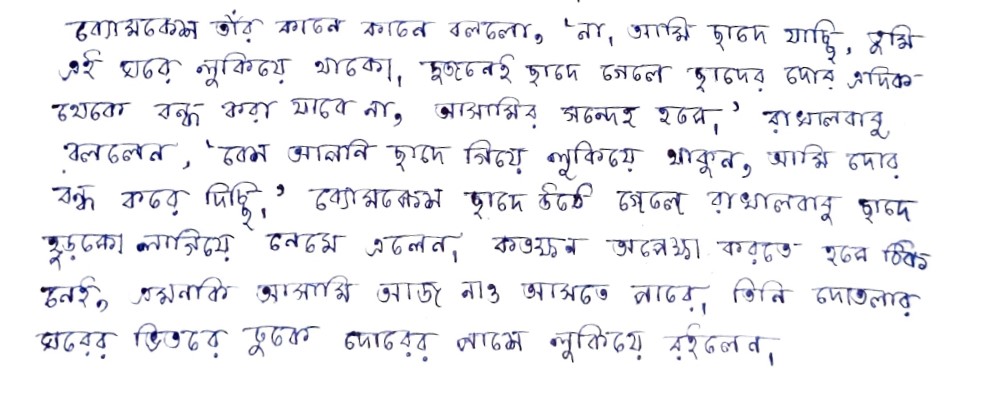 ব্যোমকেশ তাঁর কানে কানে বললো, 'না, আমি ছাদে যাচ্ছি, তুমি
এই ঘরে লুকিয়ে থাকো। দুজনেই ছাদে গেলে ছাদের দোর এদিক
থেকে বন্ধ করা যাবে না, আসামির সন্দেহ হবে।' রাখালবাবু
বললেন, 'বেশ আপনি ছাদে গিয়ে লুকিয়ে থাকুন, আমি দোর
বন্ধ করে দিচ্ছি।' ব্যোমকেশ ছাদে উঠে গেলে রাখালবাবু ছাদে
হুড়কো লাগিয়ে নেমে এলেন। কতক্ষন অপেক্ষা করতে হবে ঠিক
নেই, এমনকি আসামি আজ নাও আসতে পারে। তিনি দোতলার
ঘরের ভিতরে ঢুকে দোরের পাশে লুকিয়ে রইলেন।